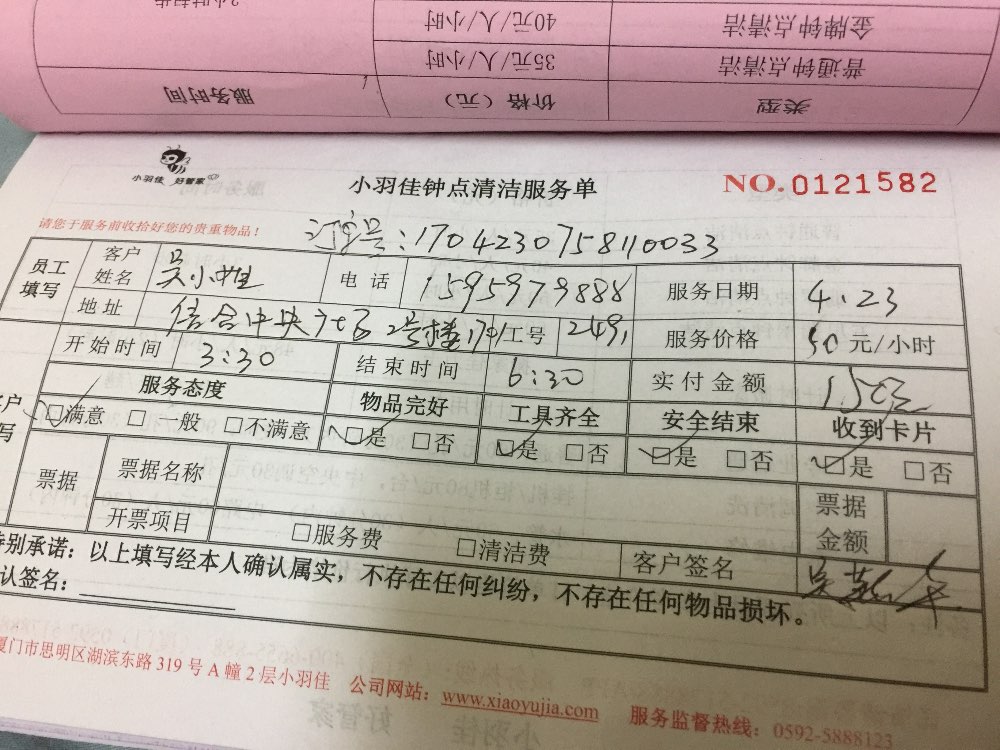 2小时起步
40元/人/小时
金牌钟点清洁
35元/人/小时
普通钟点清洁
服务时间
价格（元）
类型
小羽佳 好管家
小羽佳钟点清洁服务单
NO.0121582
请您于服务前收拾好您的贵重物品！
订单号：1704230758110033
员工填写
客户姓名
吴小姐
电话
1595979888
服务日期
4.23
地址
信合中央广场 2号楼1701
工号
2491
服务价格
50元/小时
开始时间
3:30
结束时间
6:30
实付金额
150元
服务态度
物品完好
工具齐全
安全结束
收到卡片
□满意 □一般 □不满意
□是 □否
□是 □否
□是 □否
□是 □否
票据
票据名称
票据金额
开票项目
□服务费 □清洁费
客户签名
特别承诺：以上填写经本人确认属实，不存在任何纠纷，不存在任何物品损坏。
认签名：
厦门市思明区湖滨东路319号A幢2层小羽佳 公司网站：www.xiaoyujia.com 服务监督热线：0592-5888123